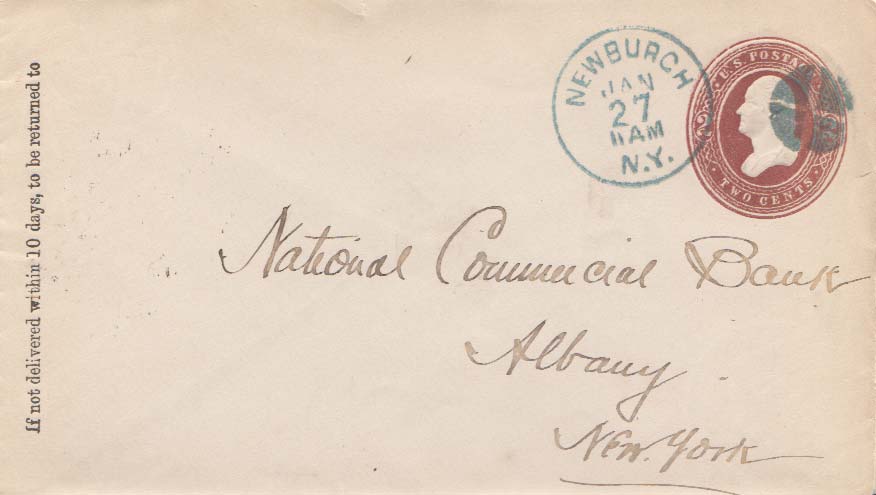 If not delivered within 10 days, to be returned to
NEWBURGH
JAN
27
11AM
N.Y.
U.S. POSTAGE
TWO CENTS
National Commercial Bank
Albany
New. York